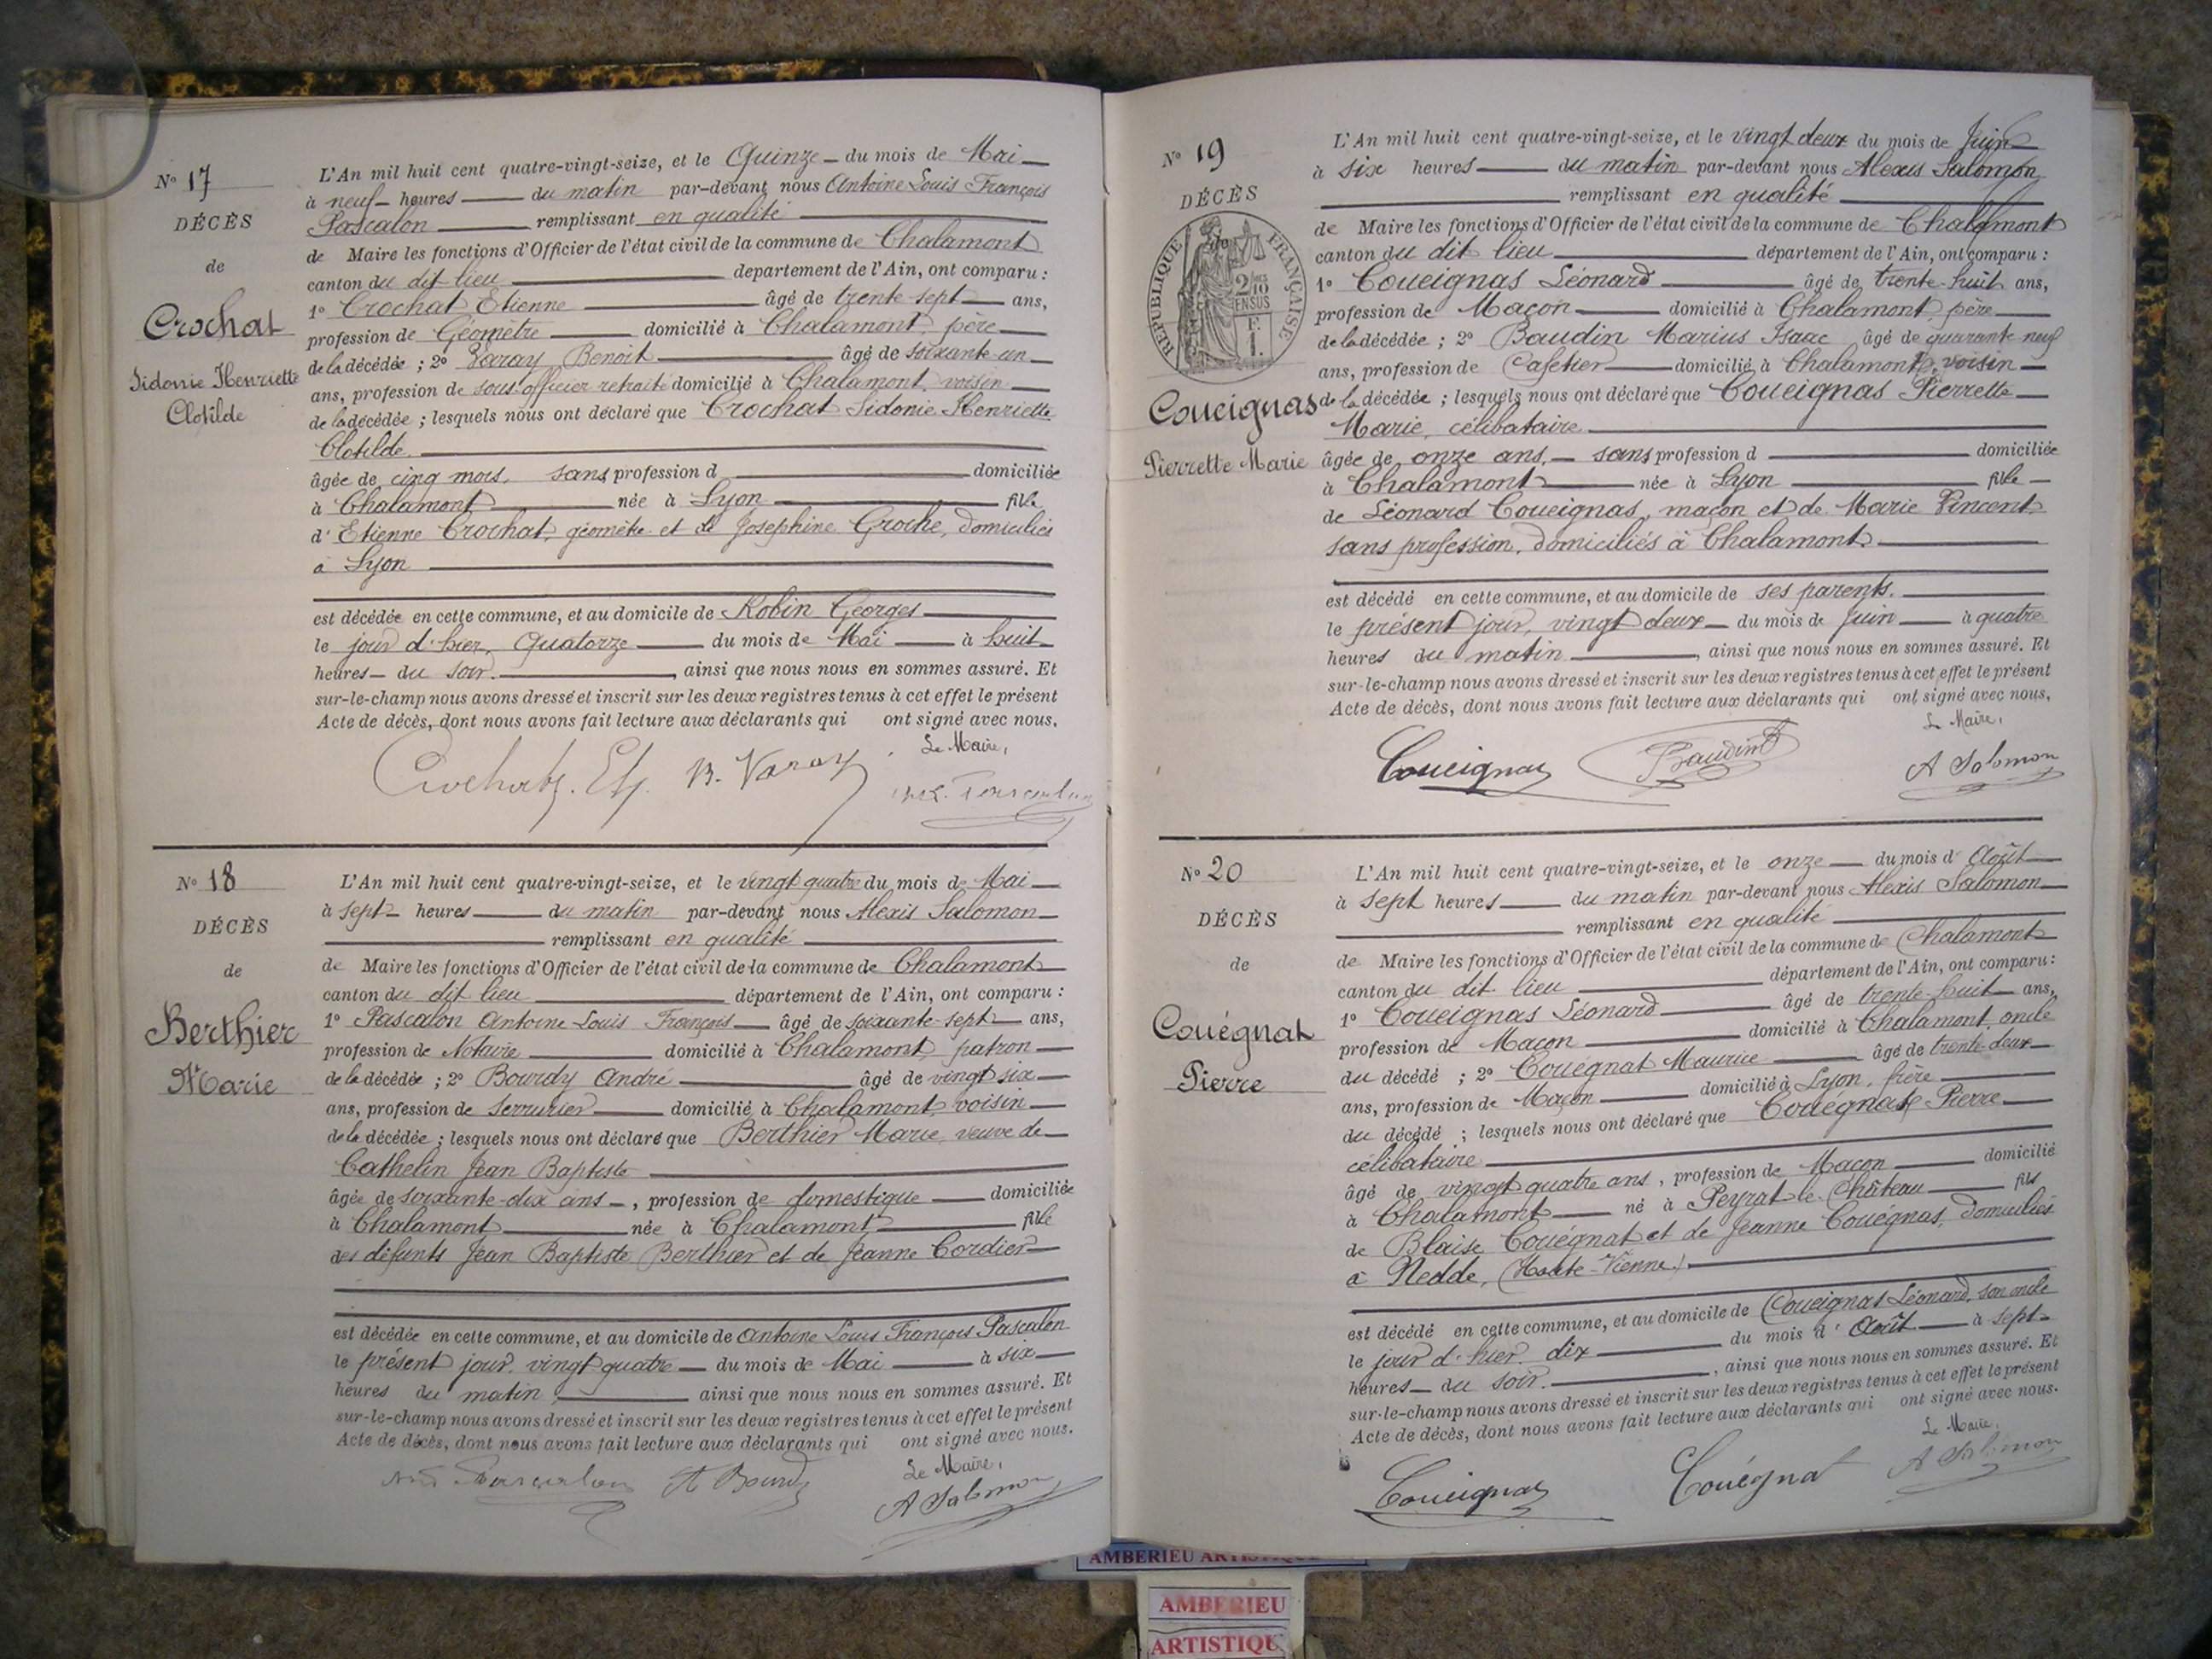 N° 17
DÉCÈS
de
Crochat
Sidonie Henriette
Clotilde
L'An mil huit cent quatre-vingt-seize, et le Quinze du mois de Mai
à neuf heures du matin par-devant nous Antoine Louis François
Pascalon remplissant en qualité
de Maire les fonctions d'Officier de l'état civil de la commune de Chalamont
canton du dit lieu département de l'Ain, ont comparu :
1° Crochat Etienne âgé de trente-sept ans,
profession de Géomètre domicilié à Chalamont, père
de la décédée ; 2° Varay Benoit âgé de soixante-un
ans, profession de sous-officier retraité domicilié à Chalamont, voisin
de la décédée ; lesquels nous ont déclaré que Crochat Sidonie Henriette
Clotilde.
âgée de cinq mois, sans profession d domiciliée
à Chalamont née à Lyon fille
d'Etienne Crochat, géomètre et de Josephine Groche, domiciliés
à Lyon
est décédée en cette commune, et au domicile de Robin Georges
le jour d'hier, Quatorze du mois de Mai à huit
heures du soir. , ainsi que nous nous en sommes assuré. Et
sur-le-champ nous avons dressé et inscrit sur les deux registres tenus à cet effet le présent
Acte de décès, dont nous avons fait lecture aux déclarants qui ont signé avec nous.
Le Maire,
Crochat. Et. B. Varay
N° 18
DÉCÈS
de
Berthier
Marie
L'An mil huit cent quatre-vingt-seize, et le vingt quatre du mois de Mai
à sept heures du matin par-devant nous Alexis Salomon
remplissant en qualité
de Maire les fonctions d'Officier de l'état civil de la commune de Chalamont
canton du dit lieu département de l'Ain, ont comparu :
1° Pascalon Antoine Louis François âgé de soixante-sept ans,
profession de Notaire domicilié à Chalamont patron
de la décédée ; 2° Bourdy André âgé de vingt six
ans, profession de Serrurier domicilié à Chalamont, voisin
de la décédée ; lesquels nous ont déclaré que Berthier Marie, veuve de
Cathelin Jean Baptiste
âgée de soixante-dix ans , profession de domestique domiciliée
à Chalamont née à Chalamont, fille
des défunts Jean Baptiste Berthier et de Jeanne Cordier
est décédée en cette commune, et au domicile de Antoine Louis François Pascalon
le présent jour, vingt quatre du mois de Mai à six
heures du matin, ainsi que nous nous en sommes assuré. Et
sur-le-champ nous avons dressé et inscrit sur les deux registres tenus à cet effet le présent
Acte de décès, dont nous avons fait lecture aux déclarants qui ont signé avec nous.
Le Maire,
Pascalon A Bourdy A Salomon
N° 19
DÉCÈS
RÉPUBLIQUE FRANÇAISE
2/10 EN SUS
Coueignas
Pierrette Marie
L'An mil huit cent quatre-vingt-seize, et le vingt deux du mois de Juin
à six heures du matin par-devant nous Alexis Salomon
remplissant en qualité
de Maire les fonctions d'Officier de l'état civil de la commune de Chalamont
canton du dit lieu département de l'Ain, ont comparu :
1° Coueignas Léonard âgé de trente-huit ans,
profession de Maçon domicilié à Chalamont, père
de la décédée ; 2° Baudin Marius Isaac âgé de quarante neuf
ans, profession de Cafetier domicilié à Chalamont, voisin
de la décédée ; lesquels nous ont déclaré que Coueignas Pierrette
Marie, célibataire
âgée de onze ans, sans profession d domiciliée
à Chalamont née à Lyon fille
de Léonard Coueignas, maçon et de Marie Vincent
sans profession, domiciliés à Chalamont
est décédé en cette commune, et au domicile de ses parents.
le présent jour, vingt deux du mois de Juin à quatre
heures du matin , ainsi que nous nous en sommes assuré. Et
sur-le-champ nous avons dressé et inscrit sur les deux registres tenus à cet effet le présent
Acte de décès, dont nous avons fait lecture aux déclarants qui ont signé avec nous.
Le Maire,
Coueignas Baudin A Salomon
N° 20
DÉCÈS
de
Couégnat
Pierre
L'An mil huit cent quatre-vingt-seize, et le onze du mois d'Août
à sept heures du matin par-devant nous Alexis Salomon
remplissant en qualité
de Maire les fonctions d'Officier de l'état civil de la commune de Chalamont
canton du dit lieu département de l'Ain, ont comparu :
1° Coueignas Léonard âgé de trente-huit ans,
profession de Maçon domicilié à Chalamont, oncle
du décédé ; 2° Couégnat Maurice âgé de trente-deux
ans, profession de Maçon domicilié à Lyon, frère
du décédé ; lesquels nous ont déclaré que Couégnat Pierre
célibataire
âgé de vingt quatre ans, profession de Maçon domicilié
à Chalamont né à Peyrat-le-Château fils
de Blaise Couégnat et de Jeanne Couégnas, domiciliés
à Nedde, (Haute-Vienne)
est décédé en cette commune, et au domicile de Coueignas Léonard, son oncle
le jour d'hier dix du mois d'Août à sept
heures du soir. , ainsi que nous nous en sommes assuré. Et
sur-le-champ nous avons dressé et inscrit sur les deux registres tenus à cet effet le présent
Acte de décès, dont nous avons fait lecture aux déclarants qui ont signé avec nous.
Le Maire,
Coueignas Couégnat A Salomon
AMBERIEU ARTISTIQUE
AMBERIEU
ARTISTIQU